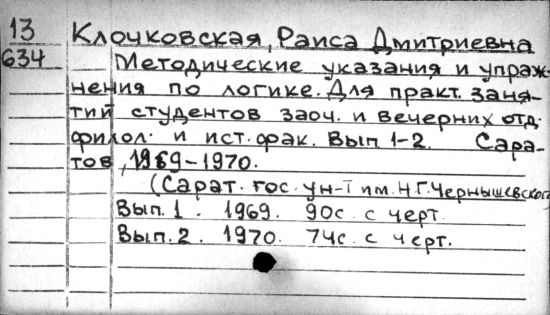 13 Клочковская, Раиса Дмитриевна
634 Методические указания и упраж-
нения по логике. Для практ. заня-
тий студентов заоч. и вечерних отд.
филол. и ист. фак. Вып 1-2. Сара-
тов, 1969-1970.
(Сарат. гос. ун-т им. Н.Г. Чернышевского
Вып. 1. 1969. 90с. с черт.
Вып. 2. 1970. 74с. с черт.